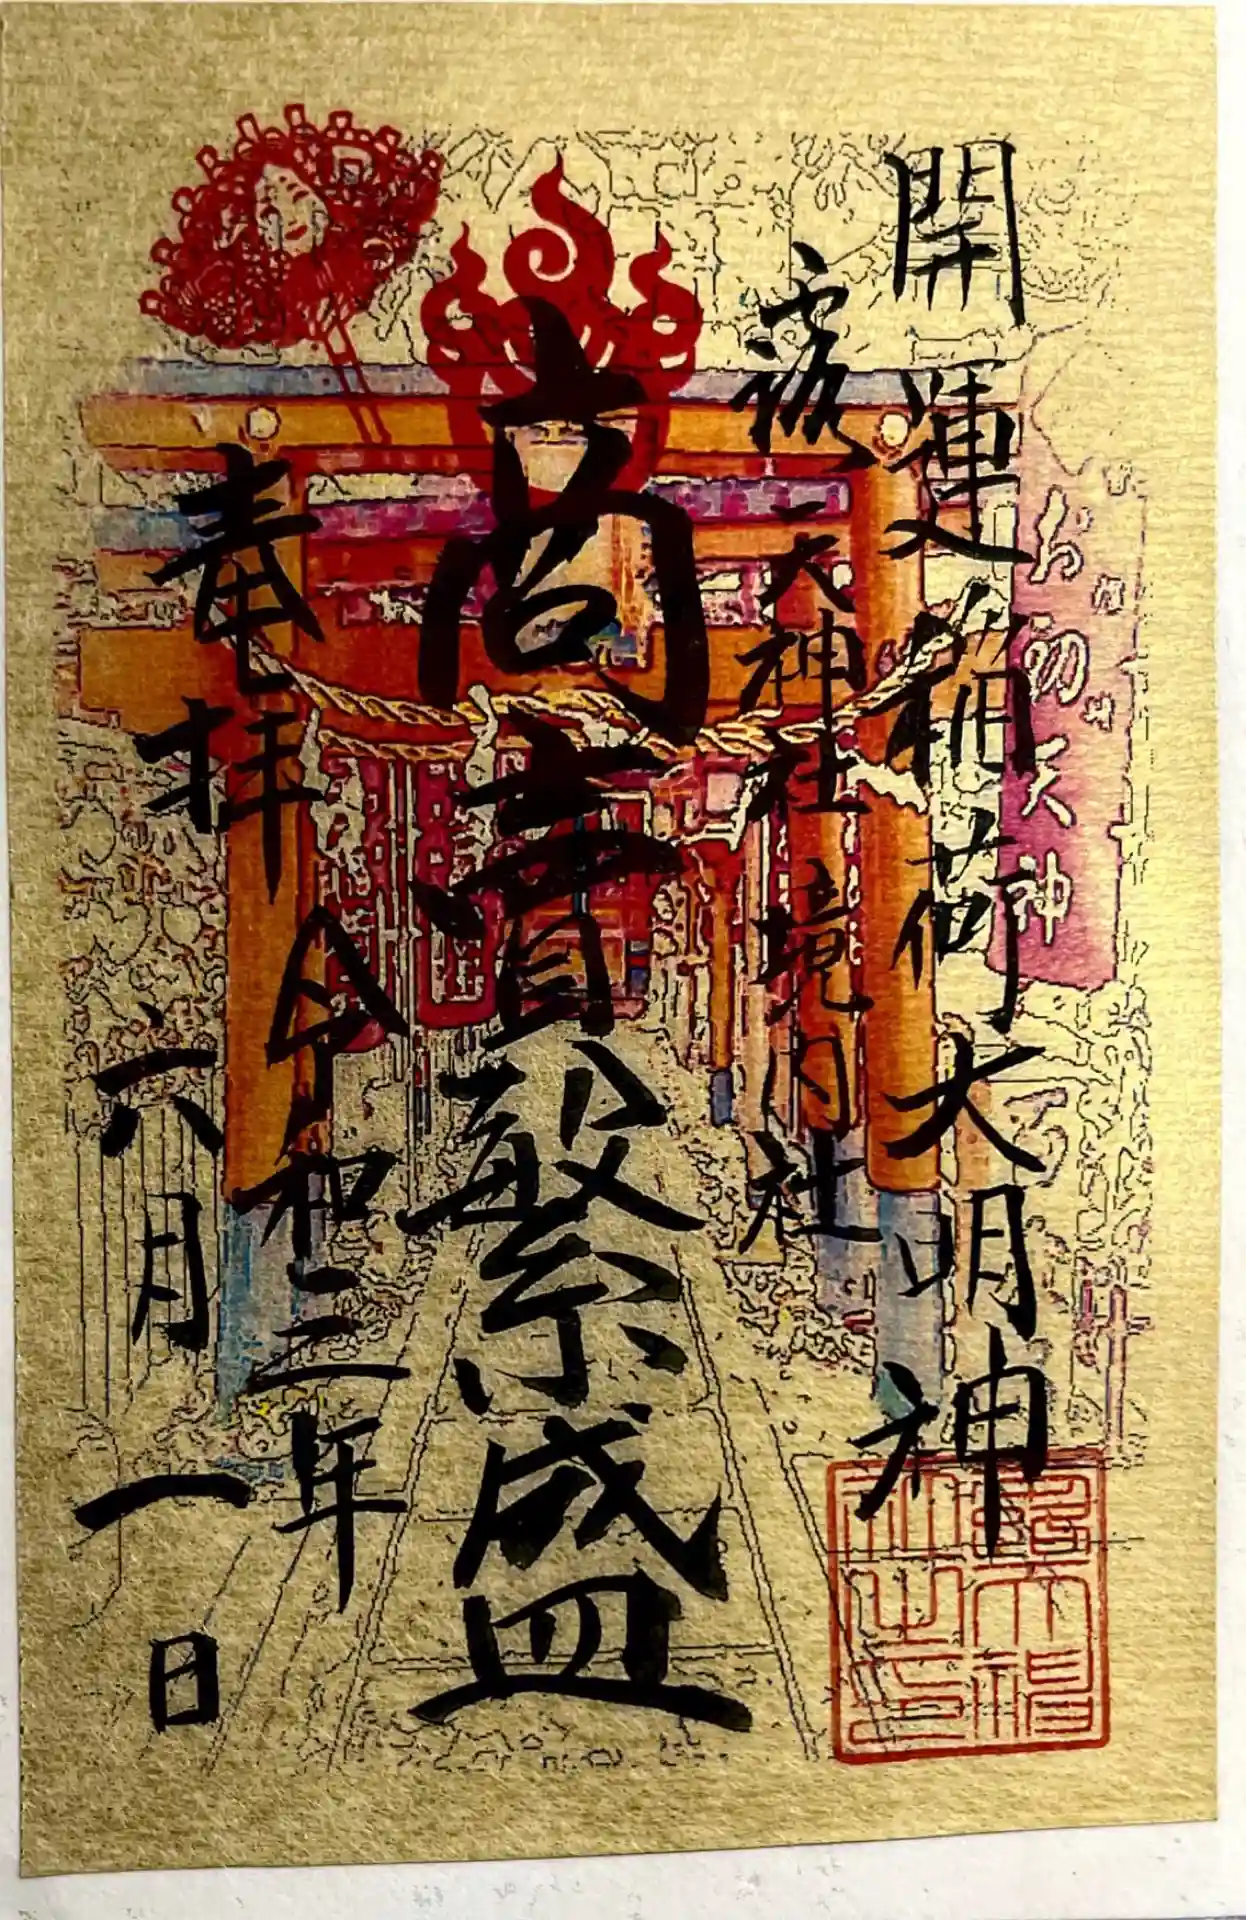 お初天神
開運稲荷大明神
露天神社境内社
商賣繁盛
奉拝
令和三年
六月一日